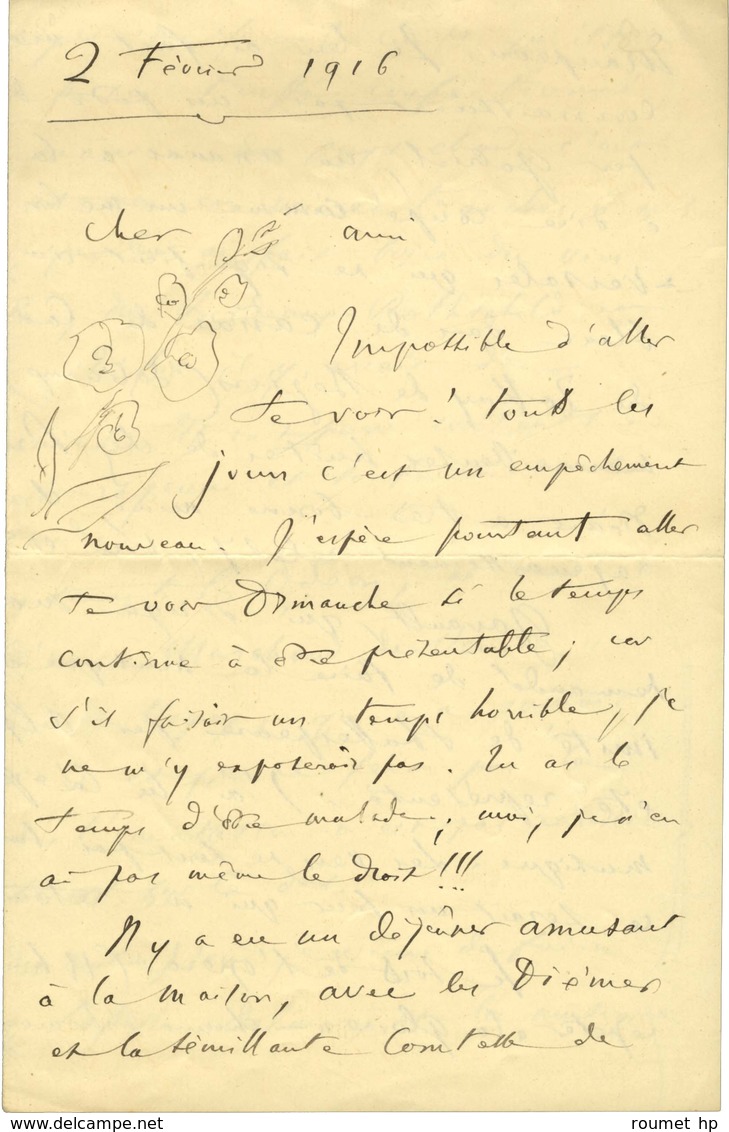 2 Février 1916
cher ami
Impossible d'aller
te voir! tous les
jours c'est un empêchement
nouveau. J'espère pourtant aller
te voir Dimanche si le temps
continue à être présentable; car
s'il faisait un temps horrible, je
ne m'y exposerois pas. Tu as le
temps d'être malade; moi, je n'en
ai pas même le droit!!!
Il y a eu un déjeuner amusant
à la maison, avec les Diémer
et la sémillante Comtesse de
roumet hp